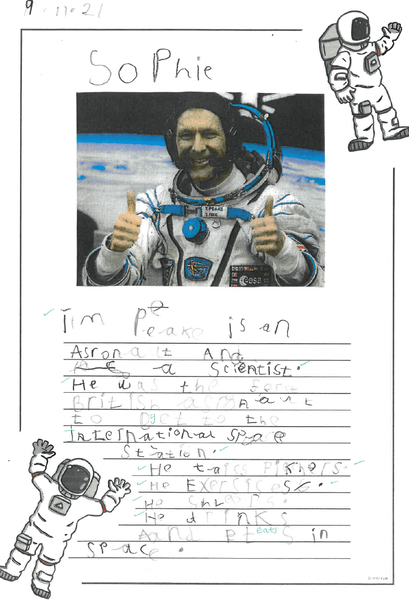 9.11.21
Sophie
Tim Peake is an
Asronalt And
a Scientist.
He was the
British
to get to the
International space
Station.
He taics Pikhers.
He Exercices.
He
He drinks
And eats in
space.